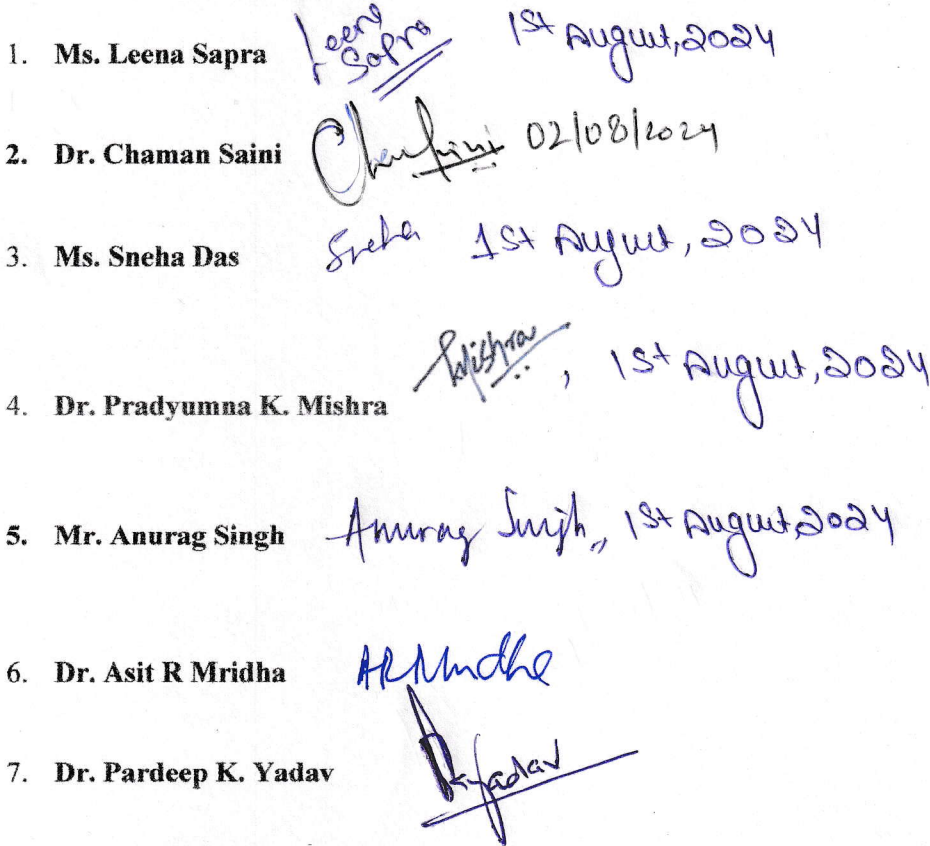 1. Ms. Leena Sapra Leena Sapra 1st August, 2024
2. Dr. Chaman Saini 02/08/2024
3. Ms. Sneha Das Sneha 1st August, 2024
4. Dr. Pradyumna K. Mishra Mishra, 1st August, 2024
5. Mr. Anurag Singh Anurag Singh, 1st August, 2024
6. Dr. Asit R Mridha ARMridha
7. Dr. Pardeep K. Yadav Yadav